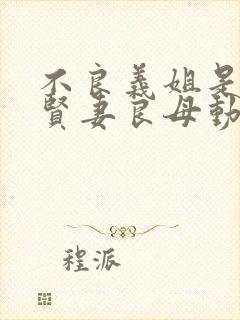 不良義姐是
賢妻良母動
程派